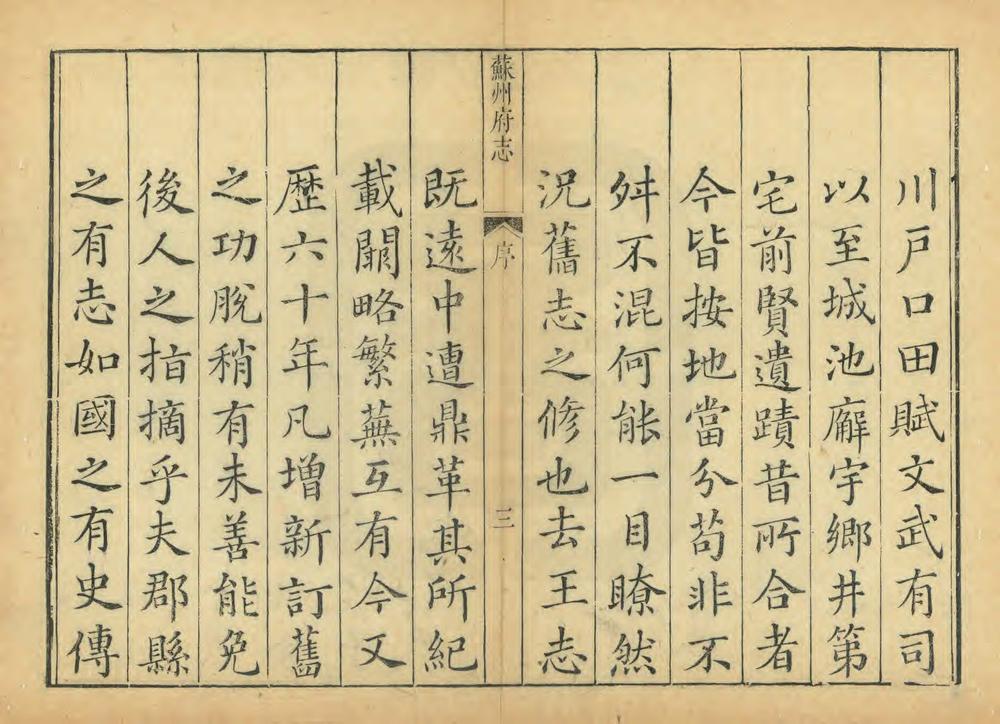 川戸口田賦文武有司
以至城池廨宇鄉井第
宅前賢遺蹟昔所合者
今皆按地當分苟非不
舛不混何能一目瞭然
況舊志之修也去王志
蘇州府志
序
三
既遠中遭鼎革其所紀
載闕略繁蕪互有今又
歷六十年凡增新訂舊
之功脫稍有未善能免
後人之指摘乎夫郡縣
之有志如國之有史傳